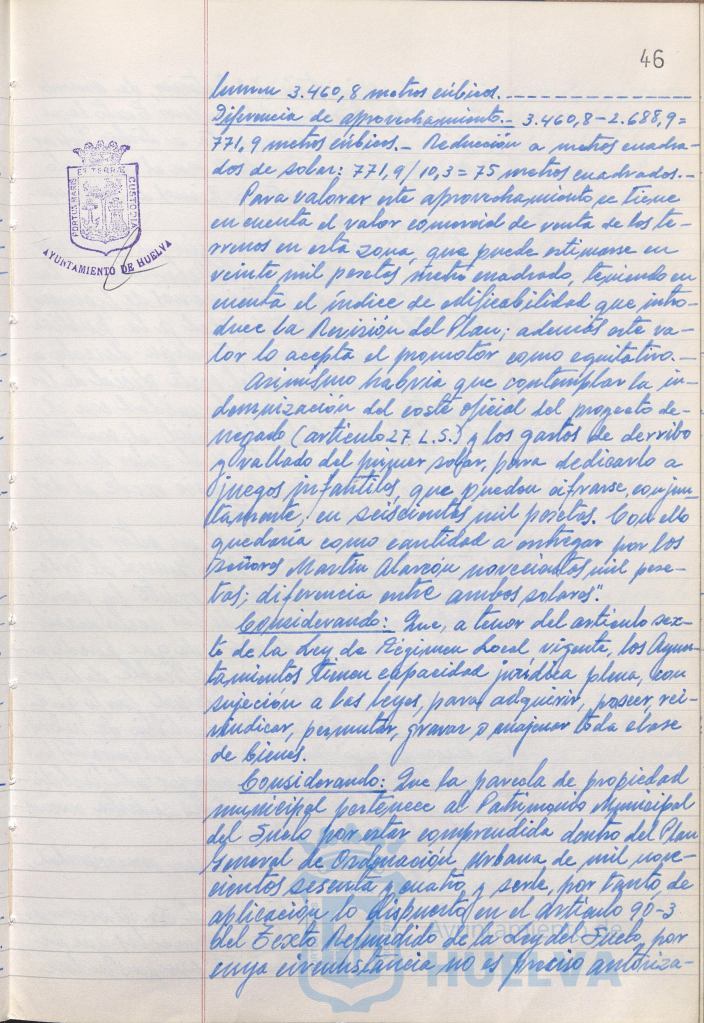 46
lumen 3.460,8 metros cúbicos.
Diferencia de aprovechamiento.- 3.460,8-2.688,9=
771,9 metros cúbicos.- Reducción a metros cuadra-
dos de solar: 771,9/10,3=75 metros cuadrados.-
Para valorar este aprovechamiento se tiene
en cuenta el valor comercial de venta de los te-
rrenos en esta zona, que puede estimarse en
veinte mil pesetas metro cuadrado, teniendo en
cuenta el índice de edificabilidad que intro-
duce la Revisión del Plan; además este va-
lor lo acepta el promotor como equitativo.-
Asimismo habría que contemplar la in-
demnización del coste oficial del proyecto de-
negado (artículo 27 L.S.) y los gastos de derribo
y vallado del primer solar, para dedicarlo a
juegos infantiles, que pueden cifrarse, conjun-
tamente, en seiscientas mil pesetas. Con ello
quedaría como cantidad a entregar por los
señores Martín Alarcón novecientas mil pese-
tas; diferencia entre ambos solares".
Considerando: Que, a tenor del artículo sex-
to de la Ley de Régimen Local vigente, los Ayun-
tamientos tienen capacidad jurídica plena, con
sujeción a las leyes, para adquirir, poseer, rei-
vindicar, permutar, gravar o enajenar toda clase
de bienes.
Considerando: Que la parcela de propiedad
municipal pertenece al Patrimonio Municipal
del Suelo por estar comprendida dentro del Plan
General de Ordenación Urbana de mil nove-
cientos sesenta y cuatro y serle, por tanto de
aplicación lo dispuesto en el artículo 90-3
del Texto Refundido de la Ley del Suelo, por
cuya circunstancia no es preciso autoriza-
PORTUS MARIS ET TERRÆ CUSTODIA
AYUNTAMIENTO DE HUELVA
Ayuntamiento de
HUELVA